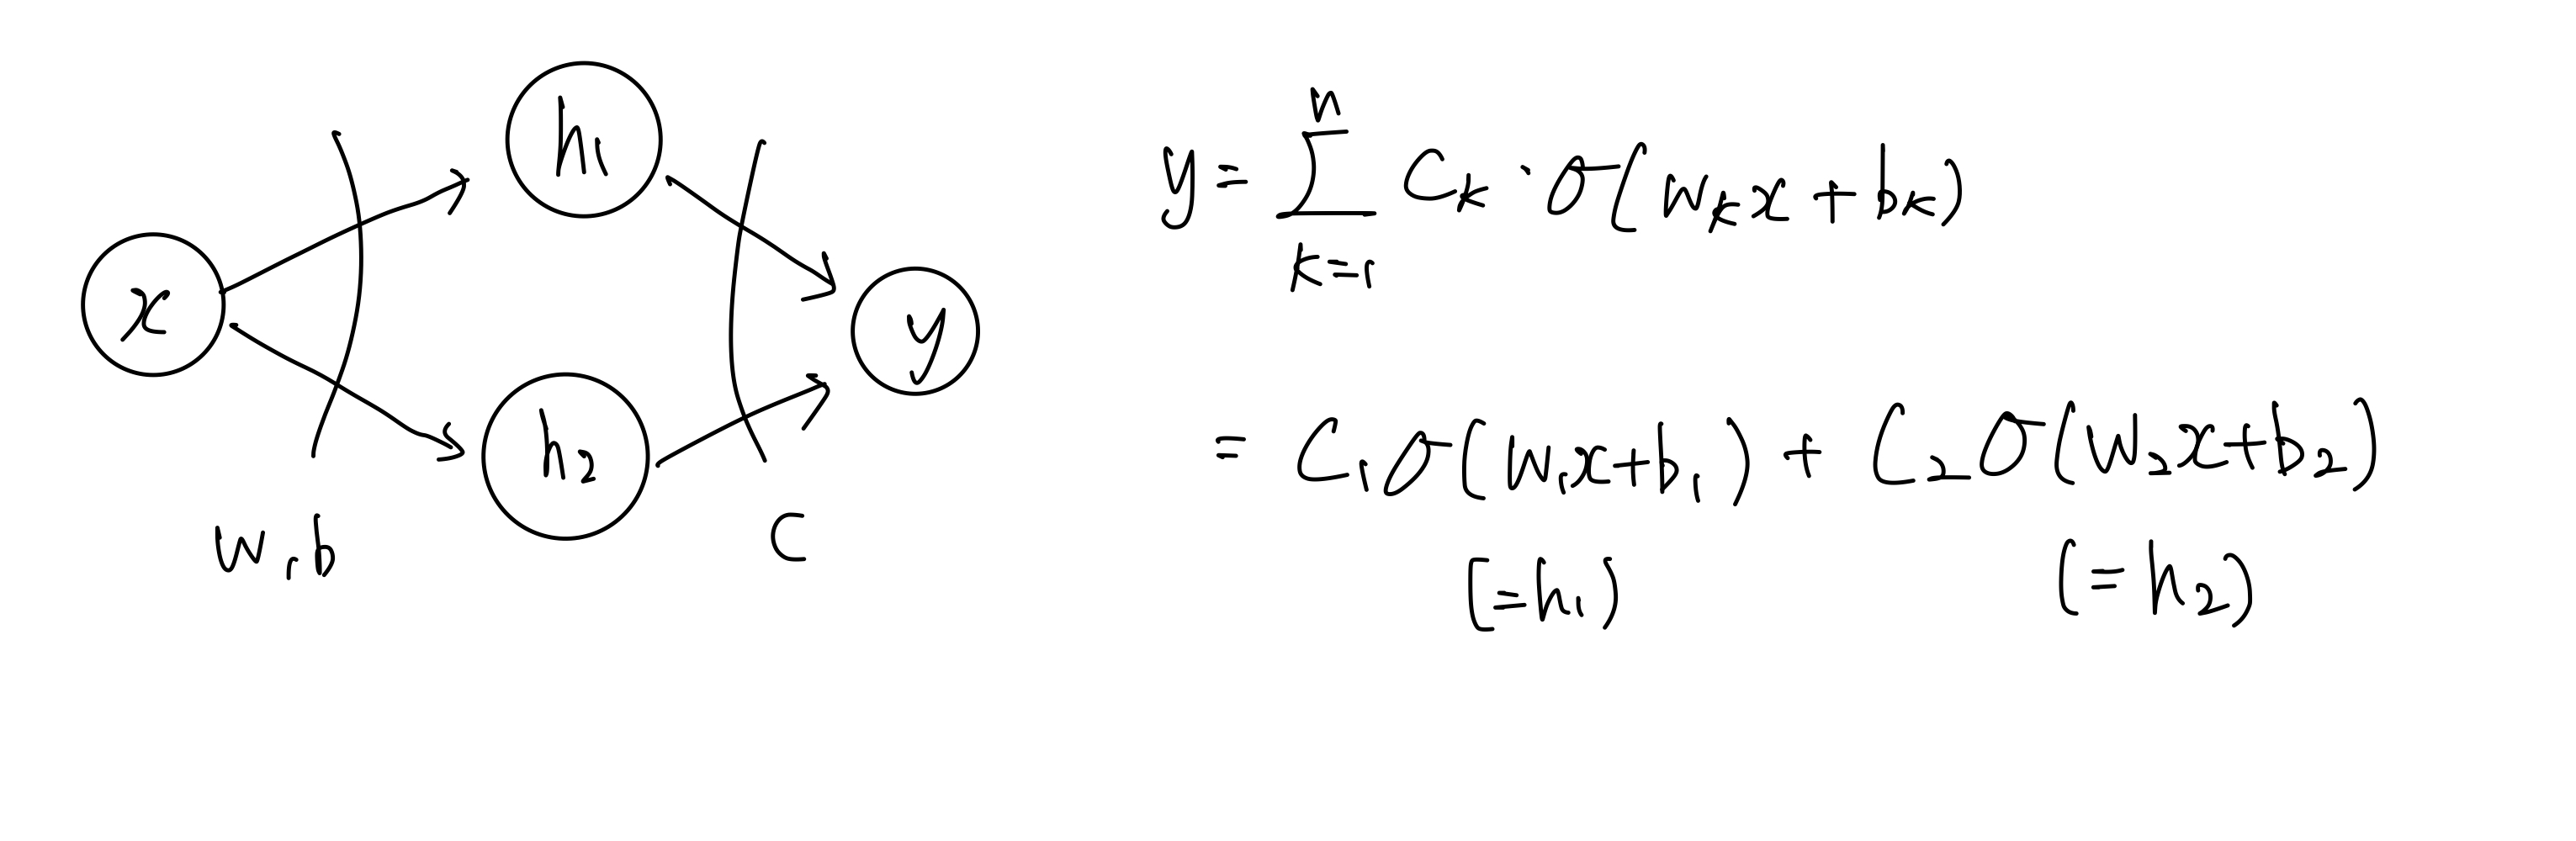 x
h₁
h₂
y
w, b
C
y = ∑ₖ₌₁ⁿ Cₖ · σ(wₖx + bₖ)
= C₁σ(w₁x+b₁) + C₂σ(w₂x+b₂)
(=h₁) (=h₂)